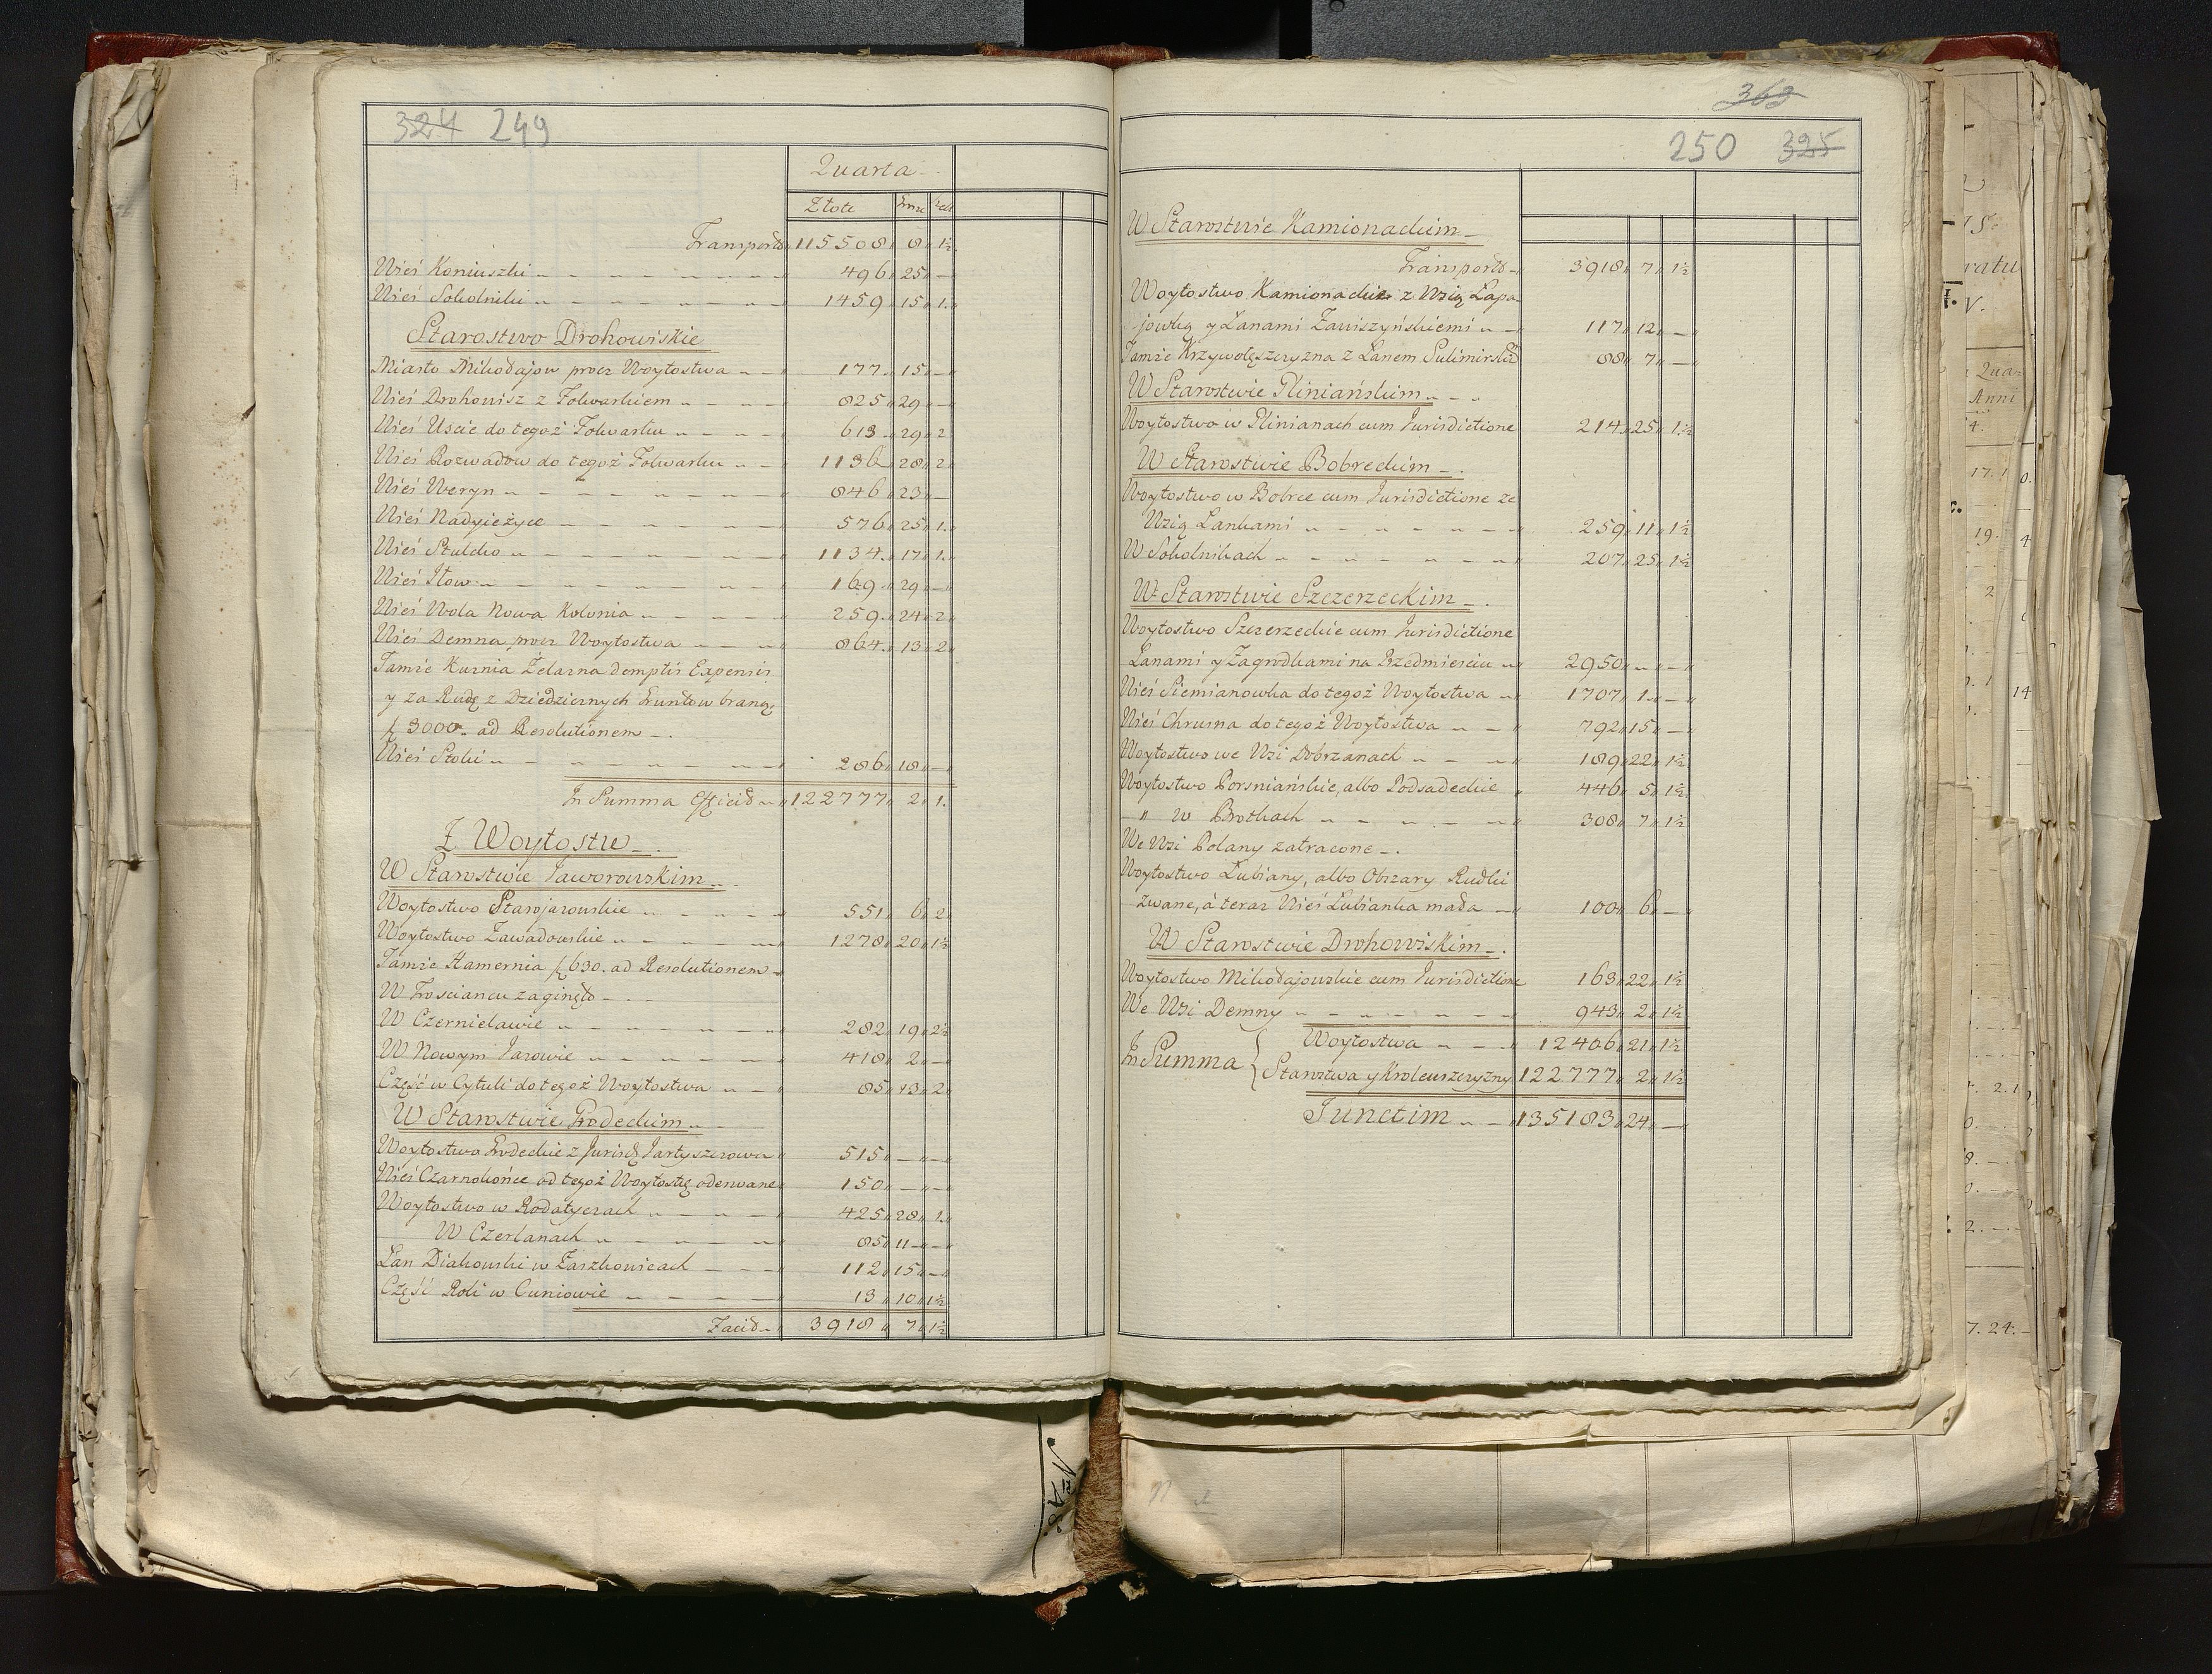 324 249
Quarta
Złote
Transport 115508 8 1½
Wieś Koniuszki 496 25 —
Wieś Sokolniki 1459 15 1
Starostwo Drohowiskie
Miasto Mikołajow procz Woytostwa 177 15 —
Wieś Drohowisz z Folwarkiem 825 29 —
Wieś Uscie do tegoż Folwarku 613 29 2
Wieś Rozwadow do tegoż Folwarku 1136 28 2
Wieś Weryn 846 23 —
Wieś Nadyieżyce 576 25 1
Wieś Stulsko 1134 17 1
Wieś Iłow 169 29 —
Wieś Wola Nowa Kolonia 259 24 2
Wieś Demna procz Woytostwa 864 13 2
Tamże Kuznia Żelazna demptis Expensis
y za Rudę z Dziedzicznych Gruntow braną
f 3000 ad Resolutionem
Wieś Stolki 286 18 —
In Summa Efficit 122777 2 1
Z Woytostw
W Starostwie Jaworowskim
Woytostwo Starojazowskie 551 6 2
Woytostwo Zawadowskie 1278 20 1½
Tamże Hamernia f 630. ad Resolutionem
W Trosciancu zaginęło
W Czernielawie 282 19 2½
W Nowym Jazowie 418 2 —
Część w Cytuli do tegoż Woytostwa 85 13 2
W Starostwie Grodeckim
Woytostwo Grodeckie z Jurisd. Jartyszowa 515 — —
Wieś Czarnokońce od tegoż Woytostw. oderwane 150 — —
Woytostwo w Rodatyczach 425 28 1
W Czerlanach 85 11 —
Łan Diakowski w Zaszkowicach 112 15 —
Część Roli w Cuniowie 13 10 1½
Facit 3918 7 1½
363
250 325
W Starostwie Kamionackim
Transport 3918 7 1½
Woytostwo Kamionackie z Wsią Łapa-
jowką y Łanami Zawiszyńskiemi 117 12 —
Tamże Krzywołęszczyzna z Łanem Sulimirski 88 7 —
W Starostwie Gliniańskim
Woytostwo w Glinianach cum Jurisdictione 214 25 1½
W Starostwie Bobreckim
Woytostwo w Bobrce cum Jurisdictione ze
Wsią Lankami 259 11 1½
W Sokolnikach 207 25 1½
W Starostwie Szczerzeckim
Woytostwo Szczerzeckie cum Jurisdictione
Łanami y Zagrodkami na Przedmiesciu 2950 — —
Wieś Siemianowka do tegoż Woytostwa 1707 1 —
Wieś Chrusna do tegoż Woytostwa 792 15 —
Woytostwo we Wsi Dobrzanach 189 22 1½
Woytostwo Porsniańskie, albo Podsadeckie 446 5 1½
" w Brotkach 308 7 1½
We Wsi Polany zatracone
Woytostwo Lubiany, albo Obszary Rudki
zwane, á teraz Wieś Lubianka mała 100 6 —
W Starostwie Drohowiskim
Woytostwo Mikołajowskie cum Jurisdictione 163 22 1½
We Wsi Demny 943 2 1½
In Summa { Woytostwa 12406 21 1½
Starostwa y Krolewszczyzny 122777 2 1½
Junctim 135183 24 —